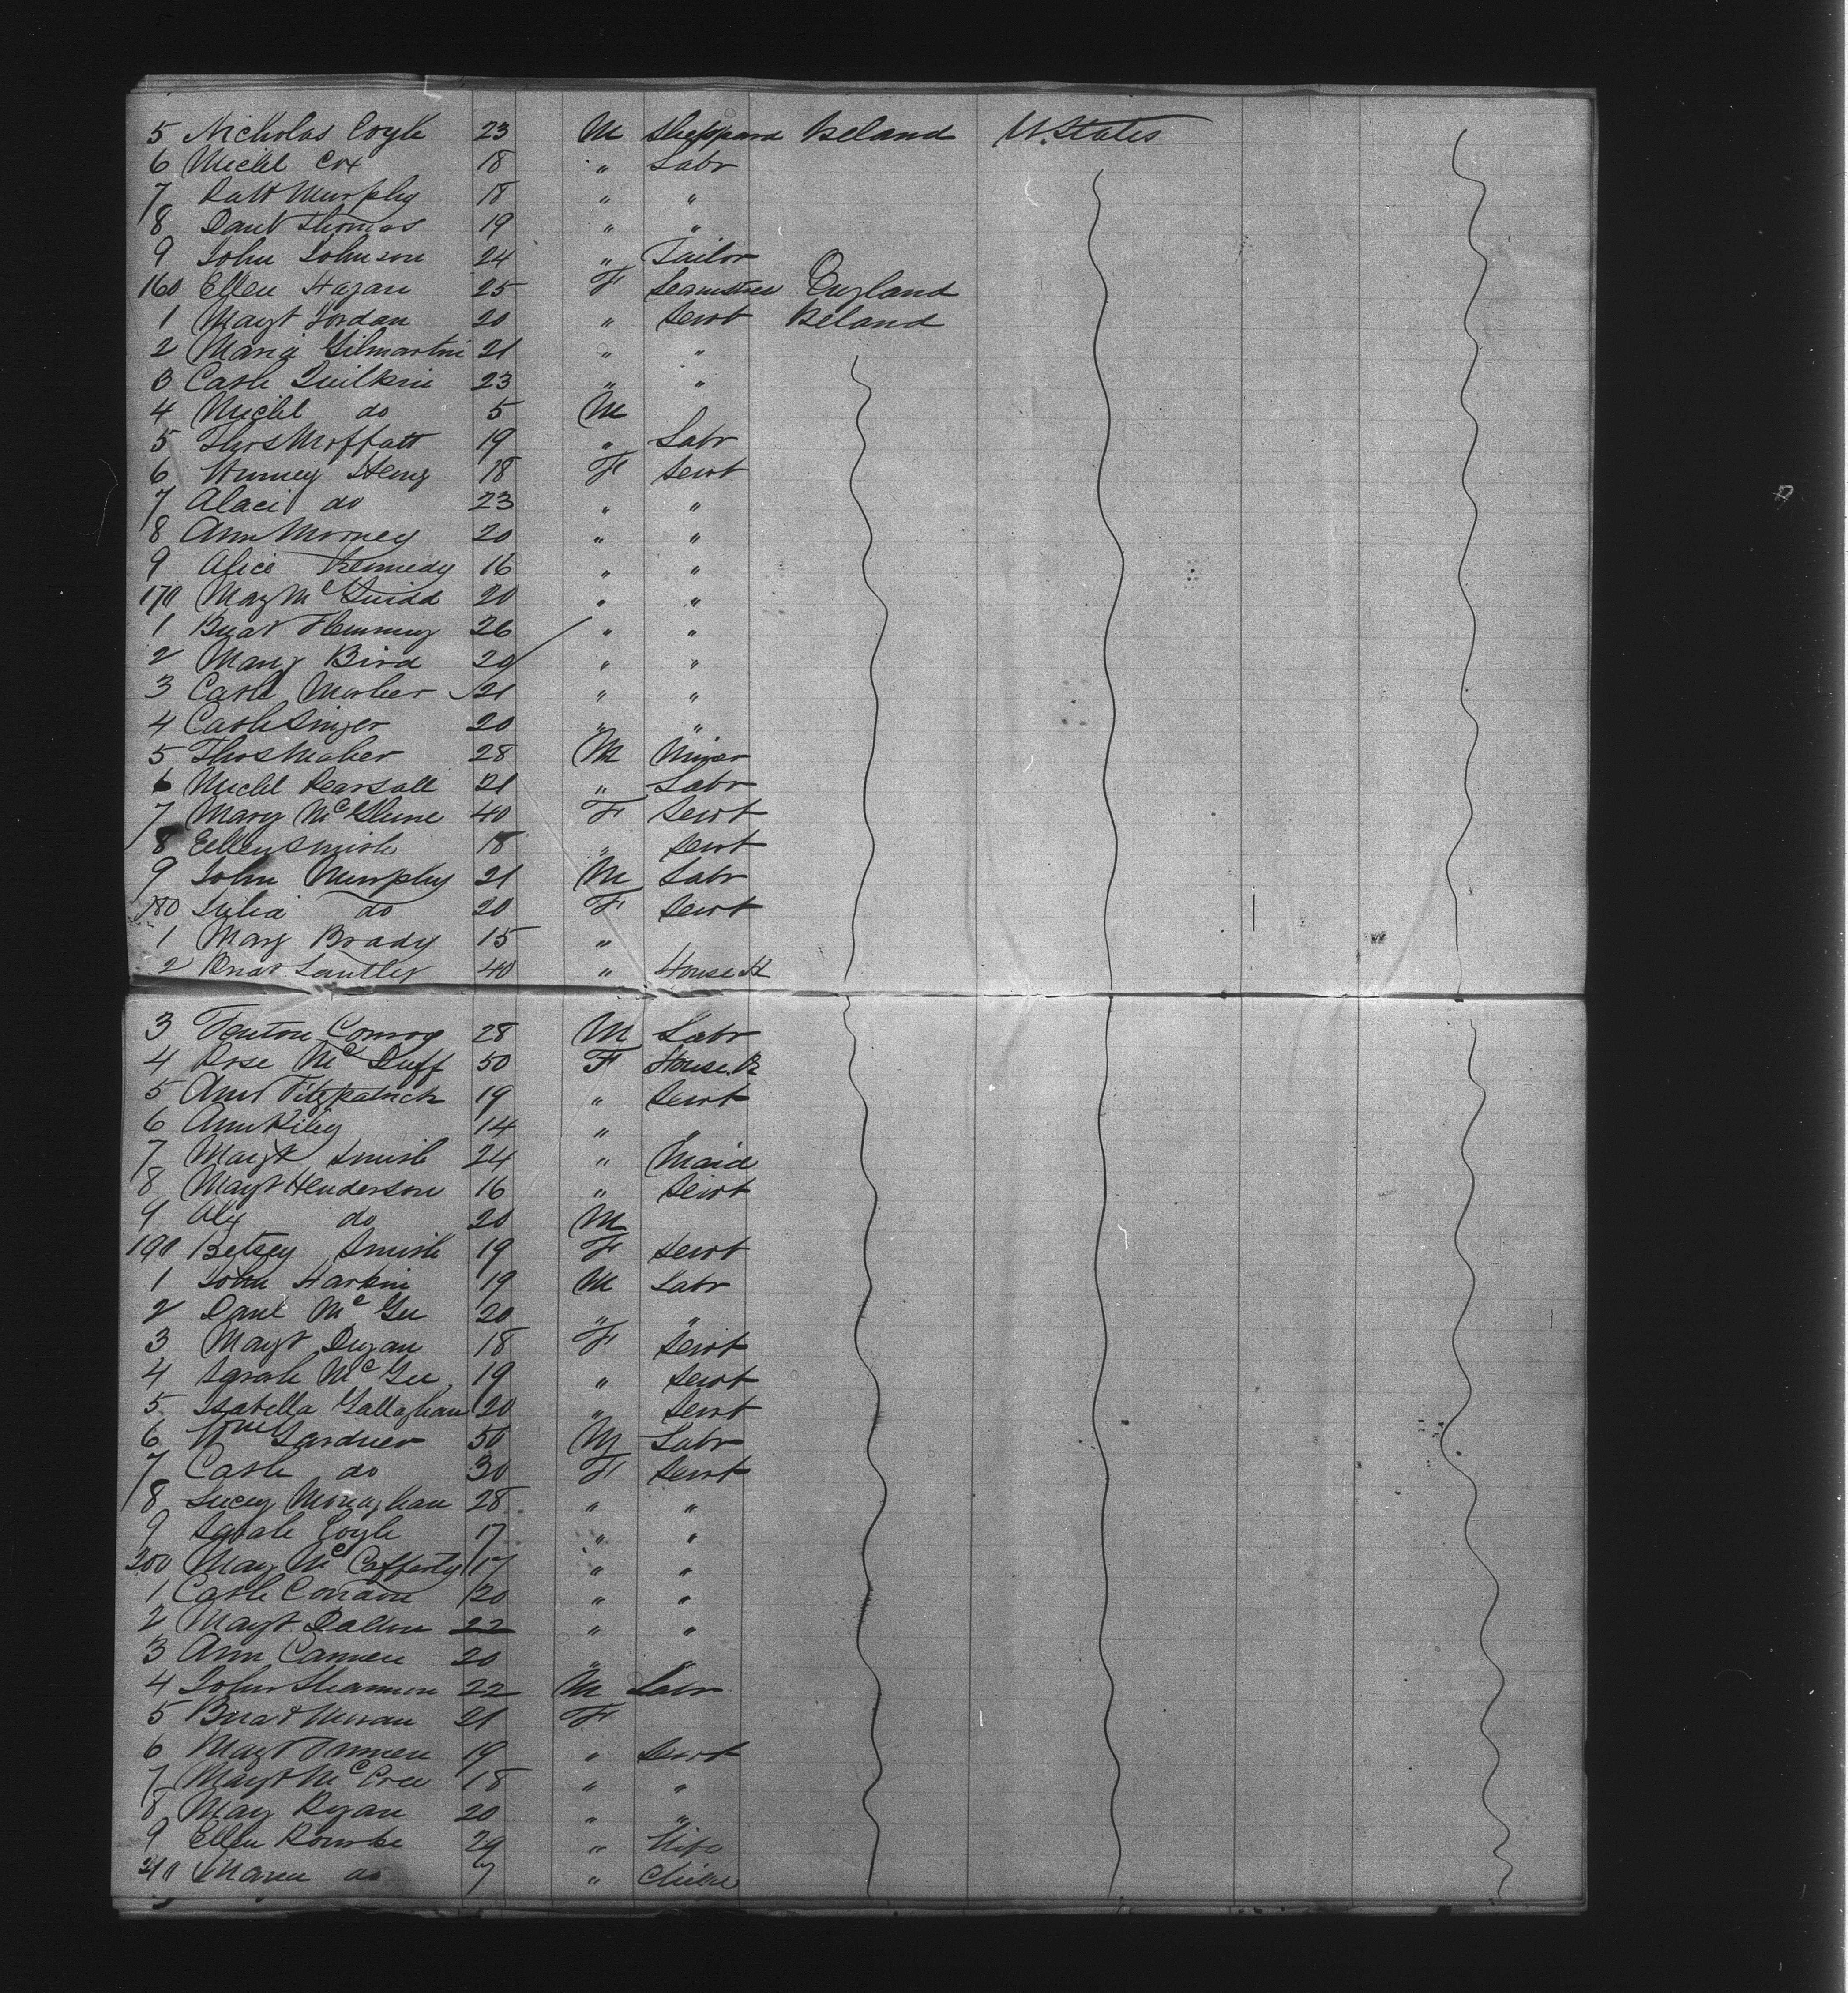 5 Nicholas Coyle 23 M Sheppard Ireland U. States
6 Michl Cox 18 " Labr
7 Patt Murphy 18 " "
8 Danl Thomas 19 " "
9 John Johnson 24 " Tailor
160 Ellen Hagan 25 F Seamstres England
1 Magt Jordan 20 " Servt Ireland
2 Maria Gilmartin 21 " "
3 Cath Quilkin 23 " "
4 Michl do 5 M
5 Thos Moffatt 19 " Labr
6 Winney Heny 18 F Servt
7 Alaci do 23 " "
8 Ann Morney 20 " "
9 Alice Kennedy 16 " "
170 Mary McQuidd 20 " "
1 Bridt Flemming 26 " "
2 Mary Bird 20 " "
3 Cath Maher 21 " "
4 Cath Singer 20 " "
5 Thos Maher 28 M Miner
6 Michl Pearsall 21 " Labr
7 Mary McGlune 40 F Servt
8 Ellen Smith 18 " Servt
9 John Murphy 21 M Labr
180 Julia do 20 F Servt
1 Mary Brady 15 "
2 Bridt 40 " House K
3 Fenton Conroy 28 M Labr
4 Rose McDuff 50 F House K
5 Ann Fitzpatrick 19 " Servt
6 Ann Riley 14 " "
7 Magt Smith 24 " Maid
8 Magt Henderson 16 " Servt
9 Alex do 20 M
190 Betsey Smith 19 F Servt
1 John Harkin 19 M Labr
2 Danl McGee 20 " "
3 Magt Dugan 18 F Servt
4 Sarah McGee 19 " Servt
5 Isabella Gallaghan 20 " Servt
6 Wm Gardner 50 M Labr
7 Cath do 30 F Servt
8 Lucey Monaghan 28 " "
9 Sarah Coyle 17 " "
200 Mary McCafferty 17 " "
1 Cath Conlon 20 " "
2 Magt Dalton 22 " "
3 Ann Cannen 20 " "
4 John Shannon 22 M Labr
5 Bridt Moran 21 F
6 Magt 19 " Servt
7 Magt McCree 18 " "
8 Mary Ryan 20 " "
9 Ellen Rourke 29 " Wife
210 Maria do 7 " Child